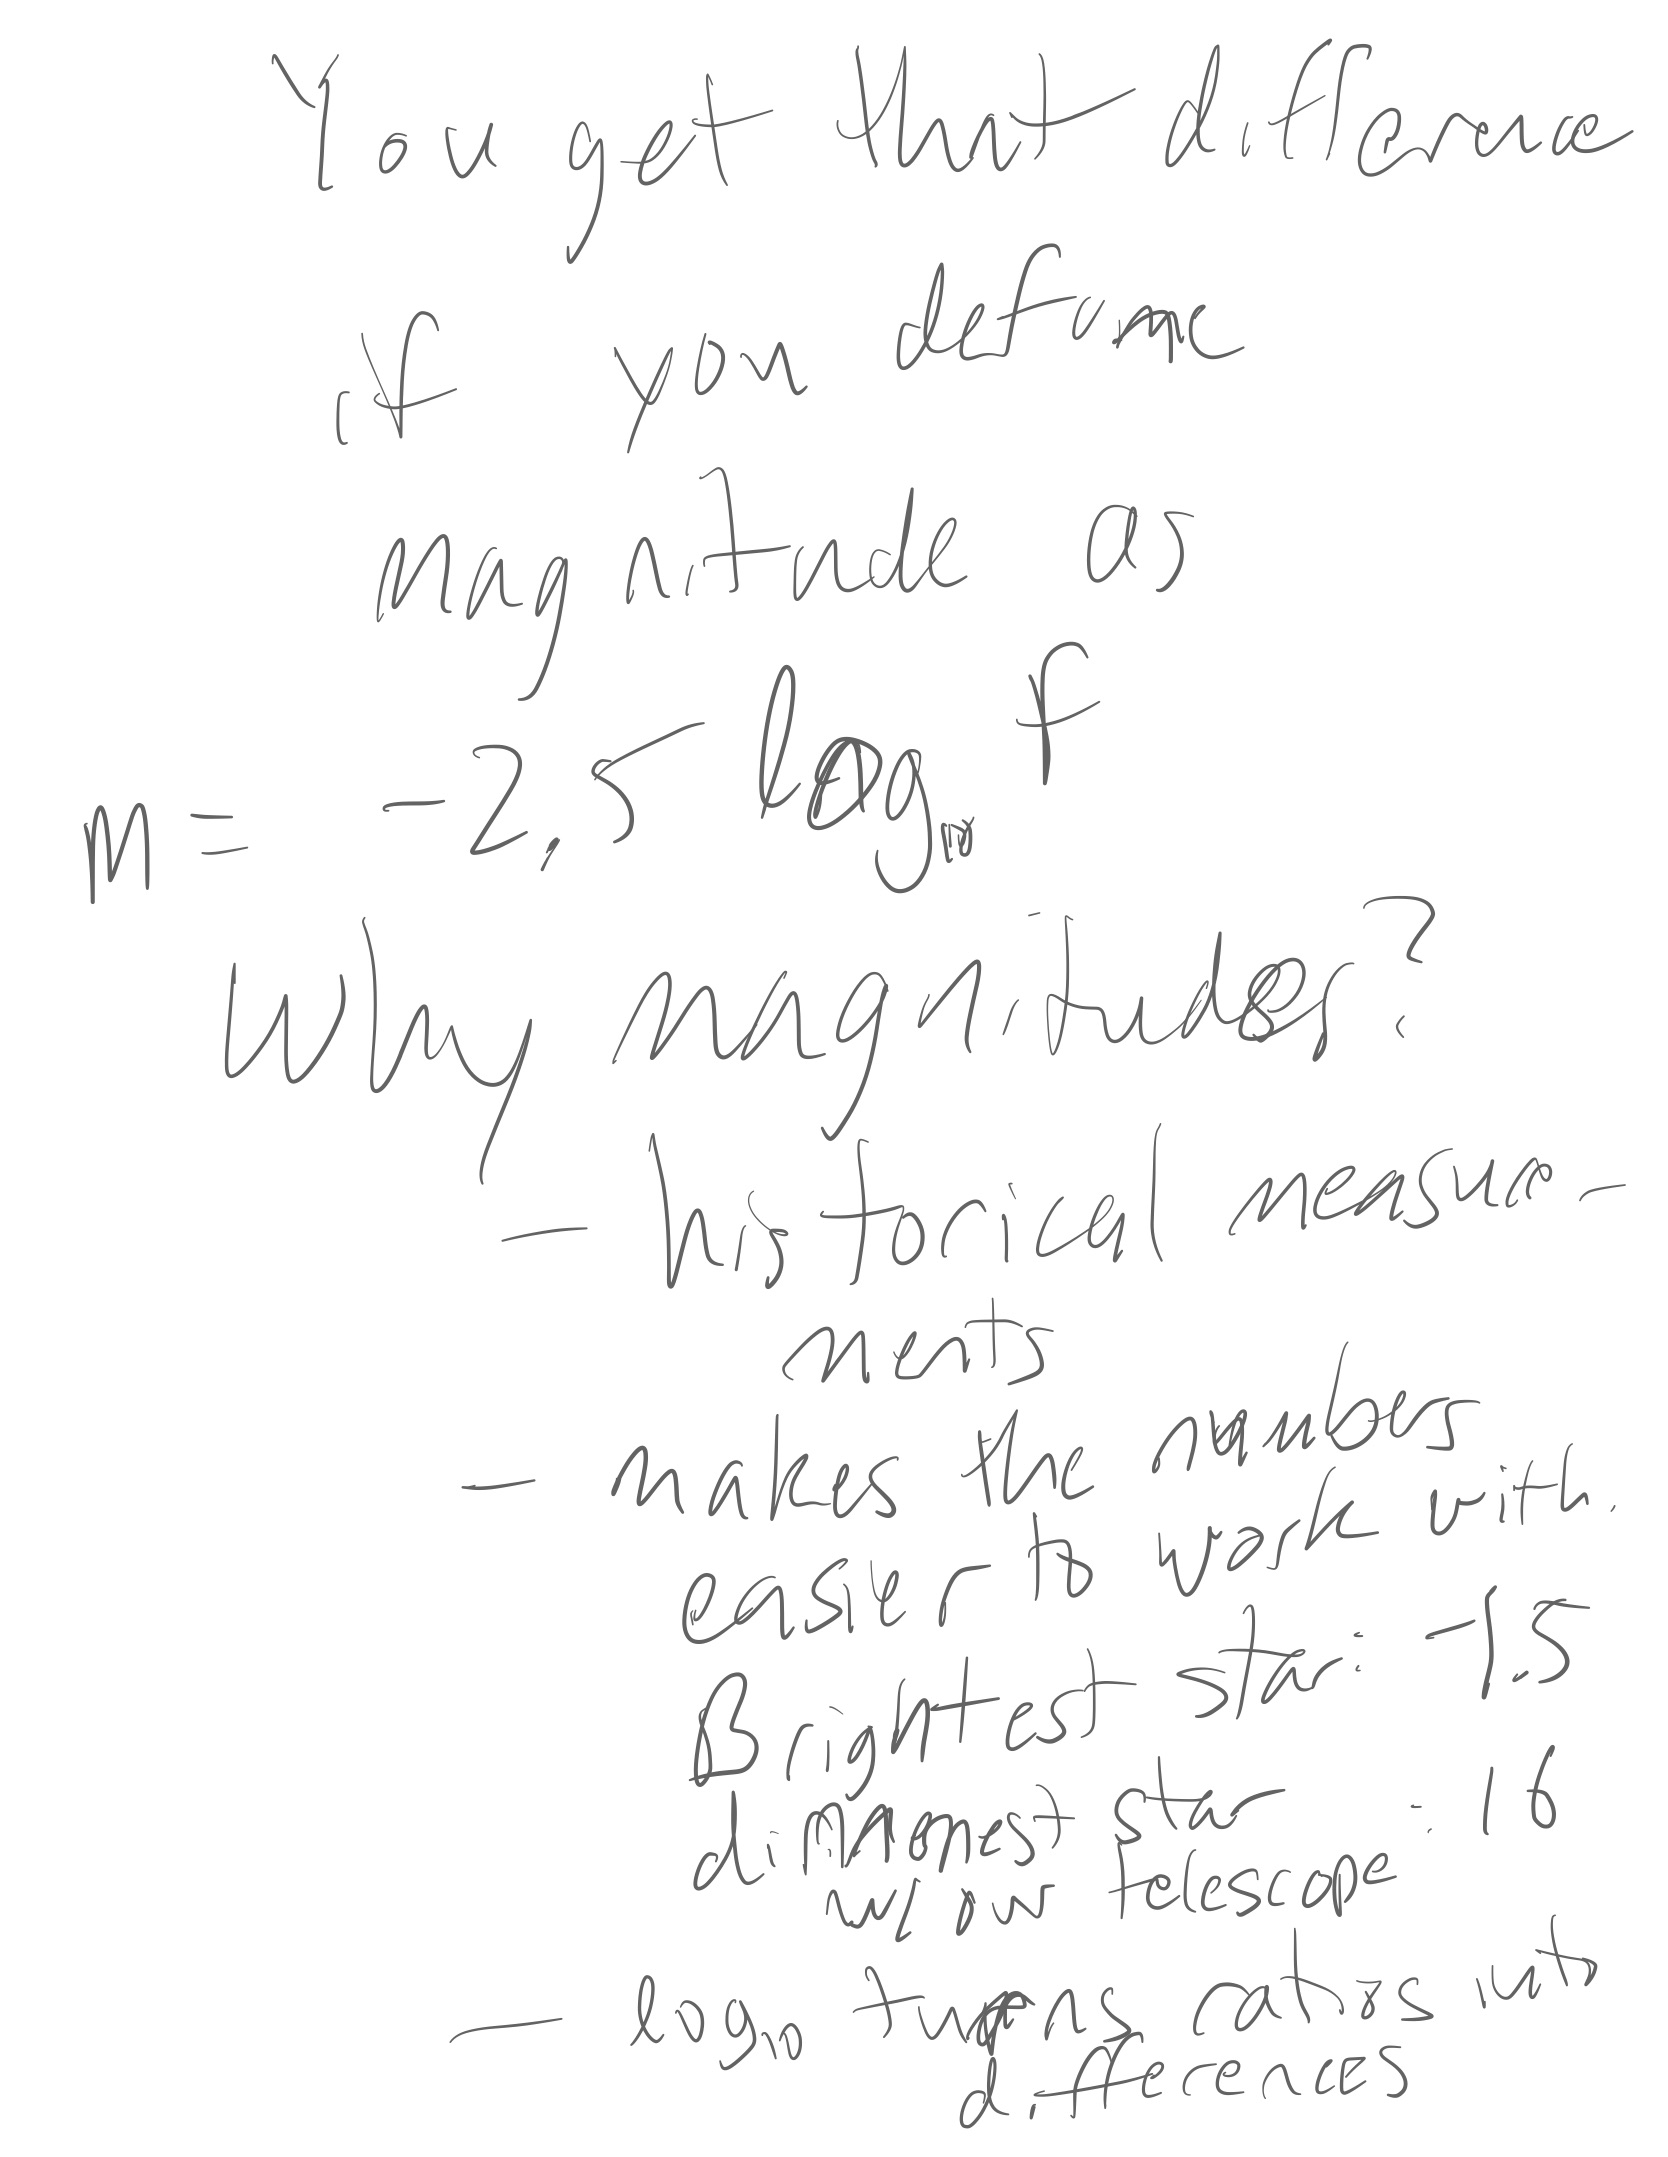 You get that difference
if you define
magnitude as
m = -2.5 log₁₀ f
Why magnitudes?
- historical measure-
ments
- makes the numbers
easier to work with.
Brightest star: -1.5
dimmest star : 16
w/ our telescope
- log₁₀ turns ratios into
differences